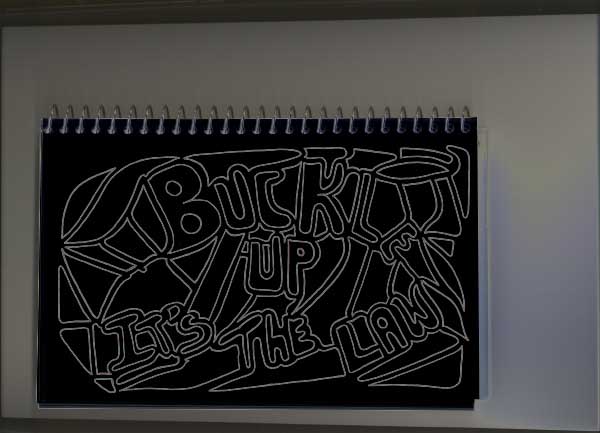 BUCKLE
UP
IT'S THE LAW